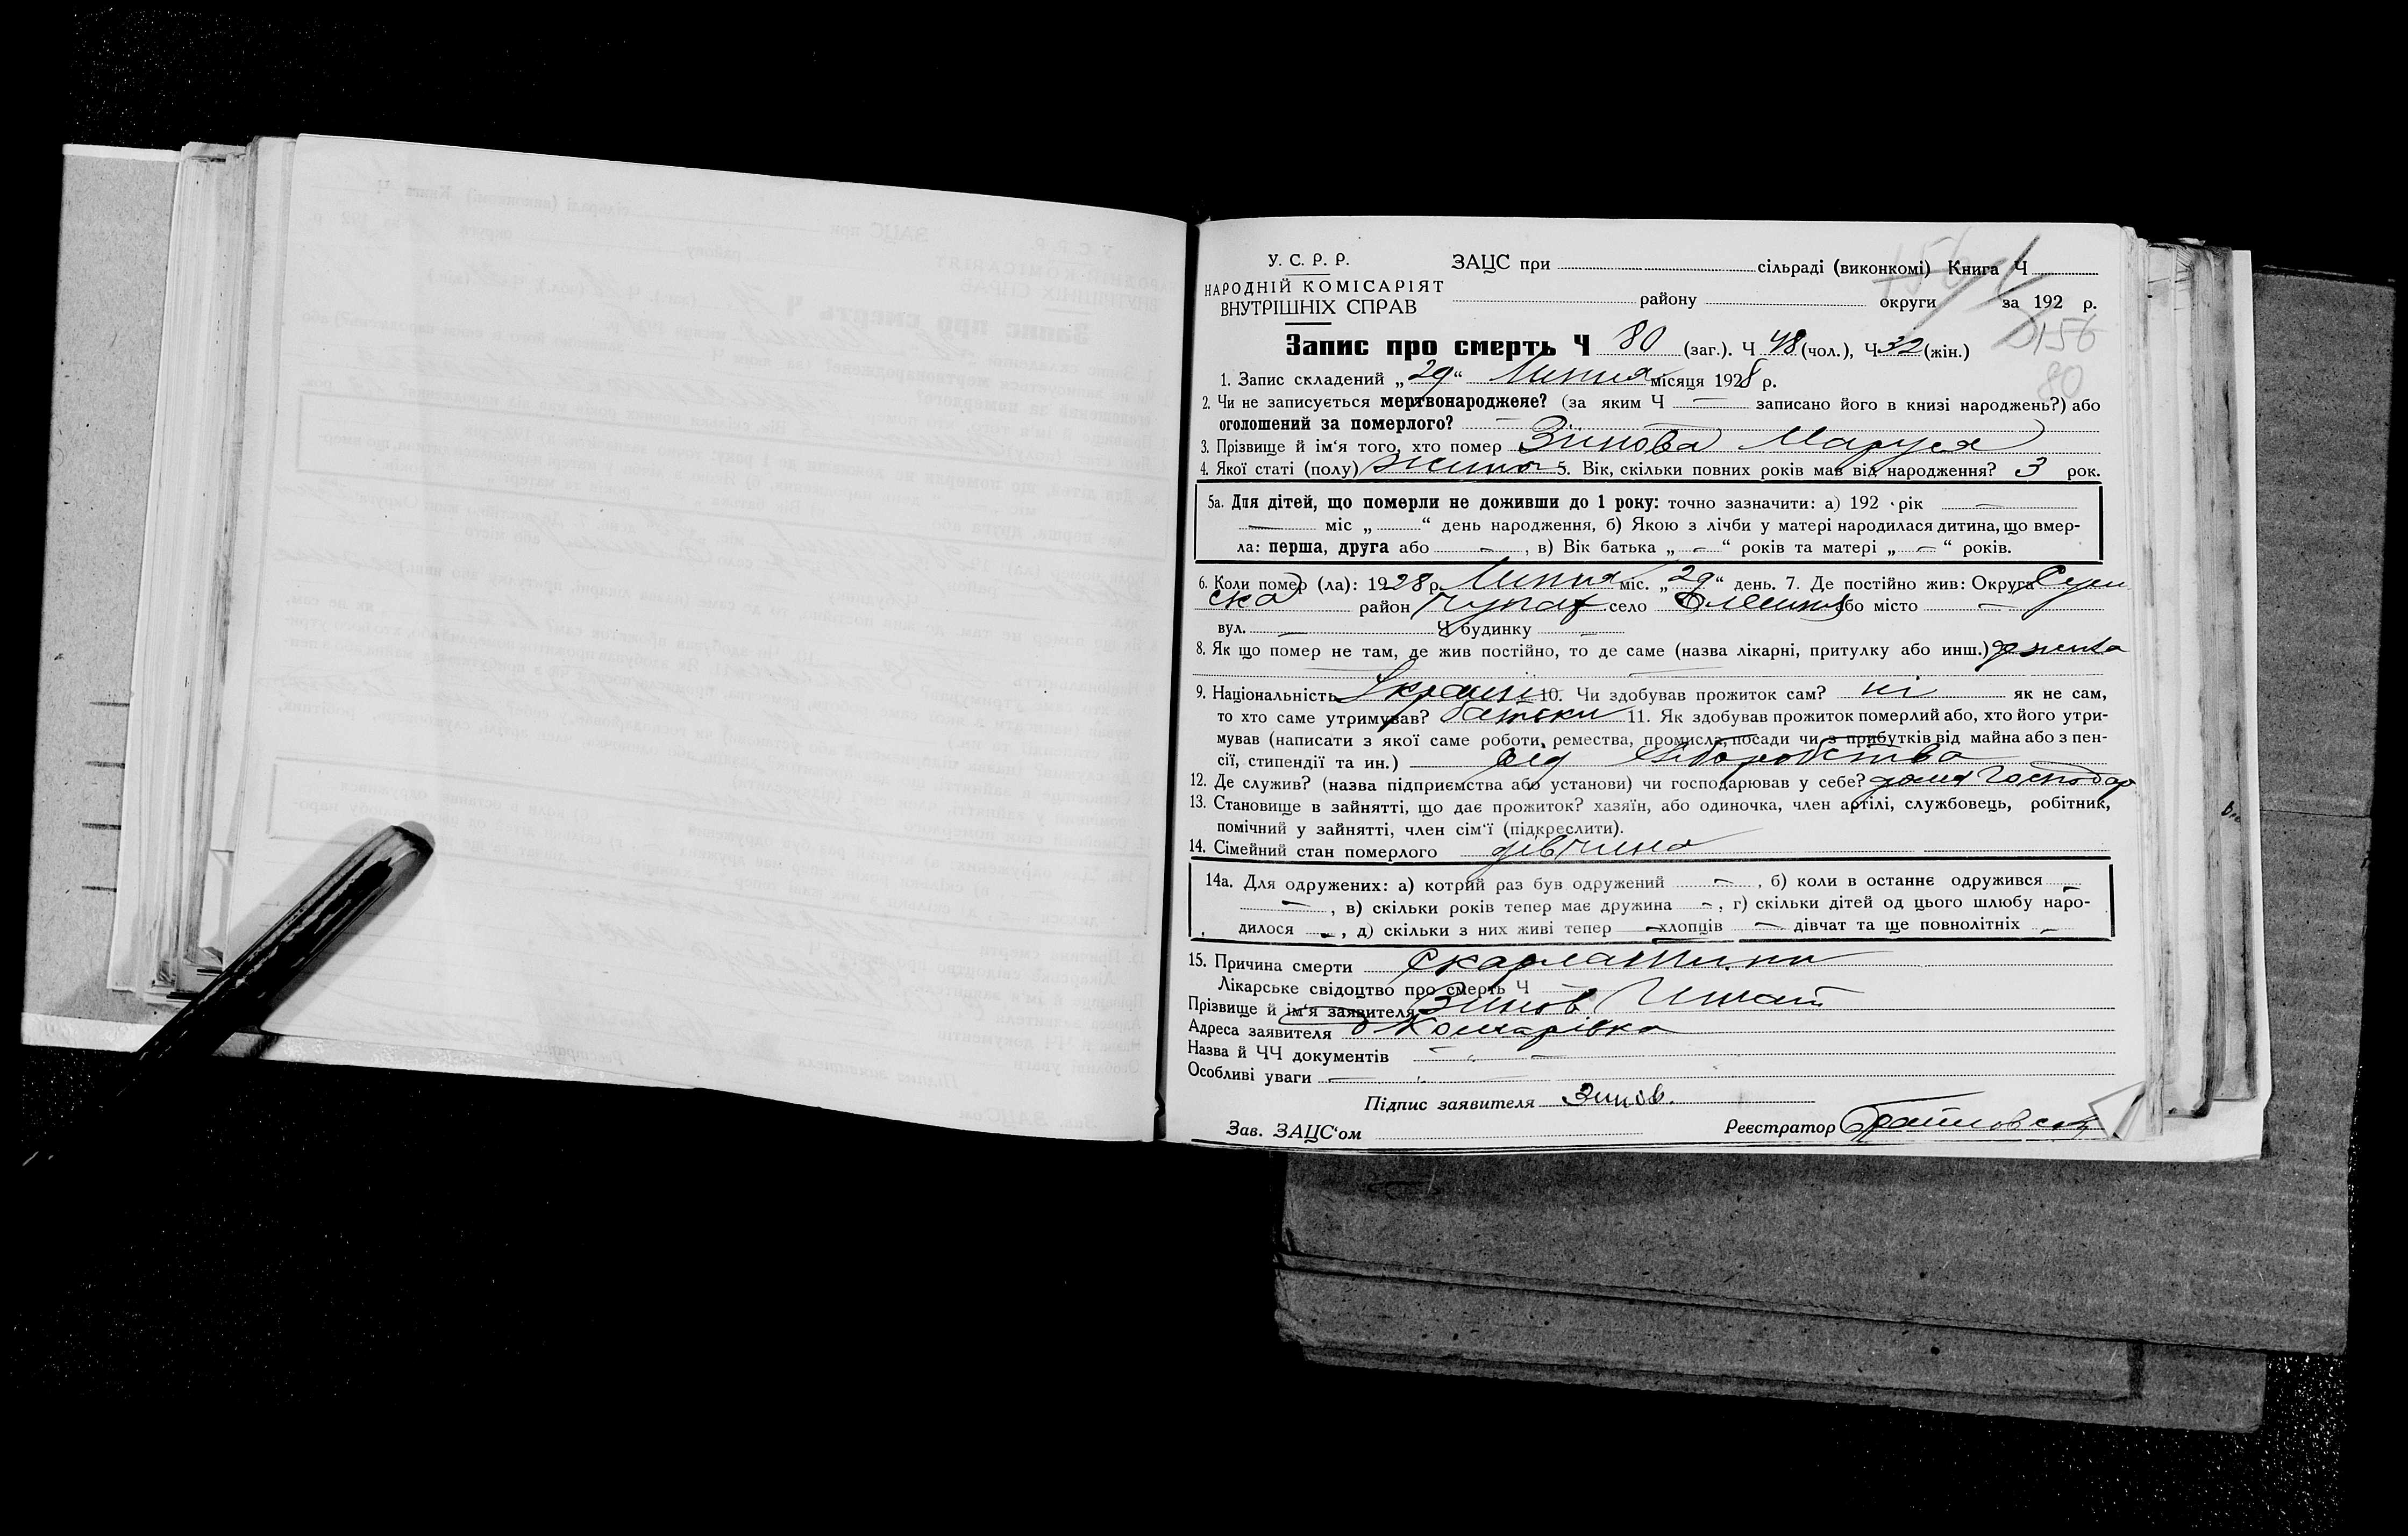 У. С. Р. Р.
НАРОДНІЙ КОМІСАРІЯТ
ВНУТРІШНІХ СПРАВ
ЗАЦС при сільраді (виконкомі) Книга Ч
району округи за 192 р.
156
80
Запис про смерть Ч 80 (заг.). Ч 48 (чол.), Ч 32 (жін.)
1. Запис складений „29“ Липня місяця 1928 р.
2. Чи не записується мертвонароджене? (за яким Ч — записано його в книзі народжень?) або
оголошений за померлого? —
3. Прізвище й ім'я того, хто помер Зінова Маруся
4. Якої статі (полу) жиноч 5. Вік, скільки повних років мав від народження? 3 рок.
5а. Для дітей, що померли не доживши до 1 року: точно зазначити: а) 192 рік —
— міс „ “ день народження, б) Якою з лічби у матері народилася дитина, що вмер-
ла: перша, друга або —, в) Вік батька „—“ років та матері „—“ років.
6. Коли помер (ла): 1928 р. Липня міс. „29“ день. 7. Де постійно жив: Округа Сум
ска район село або місто —
вул. — Ч будинку —
8. Як що помер не там, де жив постійно, то де саме (назва лікарні, притулку або инш.)
9. Національність Україн 10. Чи здобував прожиток сам? ні як не сам,
то хто саме утримував? батьки 11. Як здобував прожиток померлий або, хто його утри-
мував (написати з якої саме роботи, ремества, промисла, посади чи з прибутків від майна або з пен-
сії, стипендії та ин.) від хліборобства
12. Де служив? (назва підприємства або установи) чи господарював у себе? дома господар
13. Становище в зайнятті, що дає прожиток? хазяїн, або одиночка, член артілі, службовець, робітник,
помічний у зайнятті, член сім'ї (підкреслити).
14. Сімейний стан померлого дівчина
14а. Для одружених: а) котрий раз був одружений —, б) коли в останнє одружився —
—, в) скільки років тепер має дружина —, г) скільки дітей од цього шлюбу наро-
дилося —, д) скільки з них живі тепер — хлопців — дівчат та ще повнолітніх —
15. Причина смерти скарлатини
Лікарське свідоцтво про смерть Ч —
Прізвище й ім'я заявителя Зинов Гнат
Адреса заявителя Комарівка
Назва й ЧЧ документів —
Особливі уваги —
Підпис заявителя Зинов.
Зав. ЗАЦС'ом Реєстратор